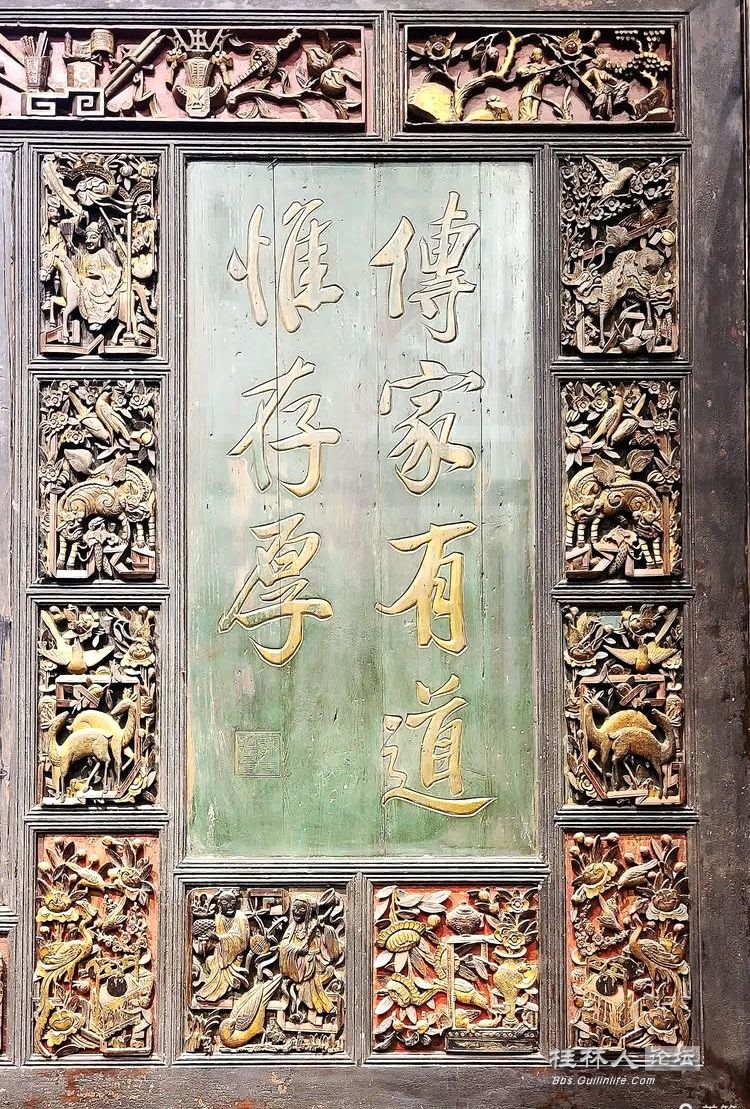 傳家有道
惟存厚
桂林人论坛
Bbs.Guilinlife.Com